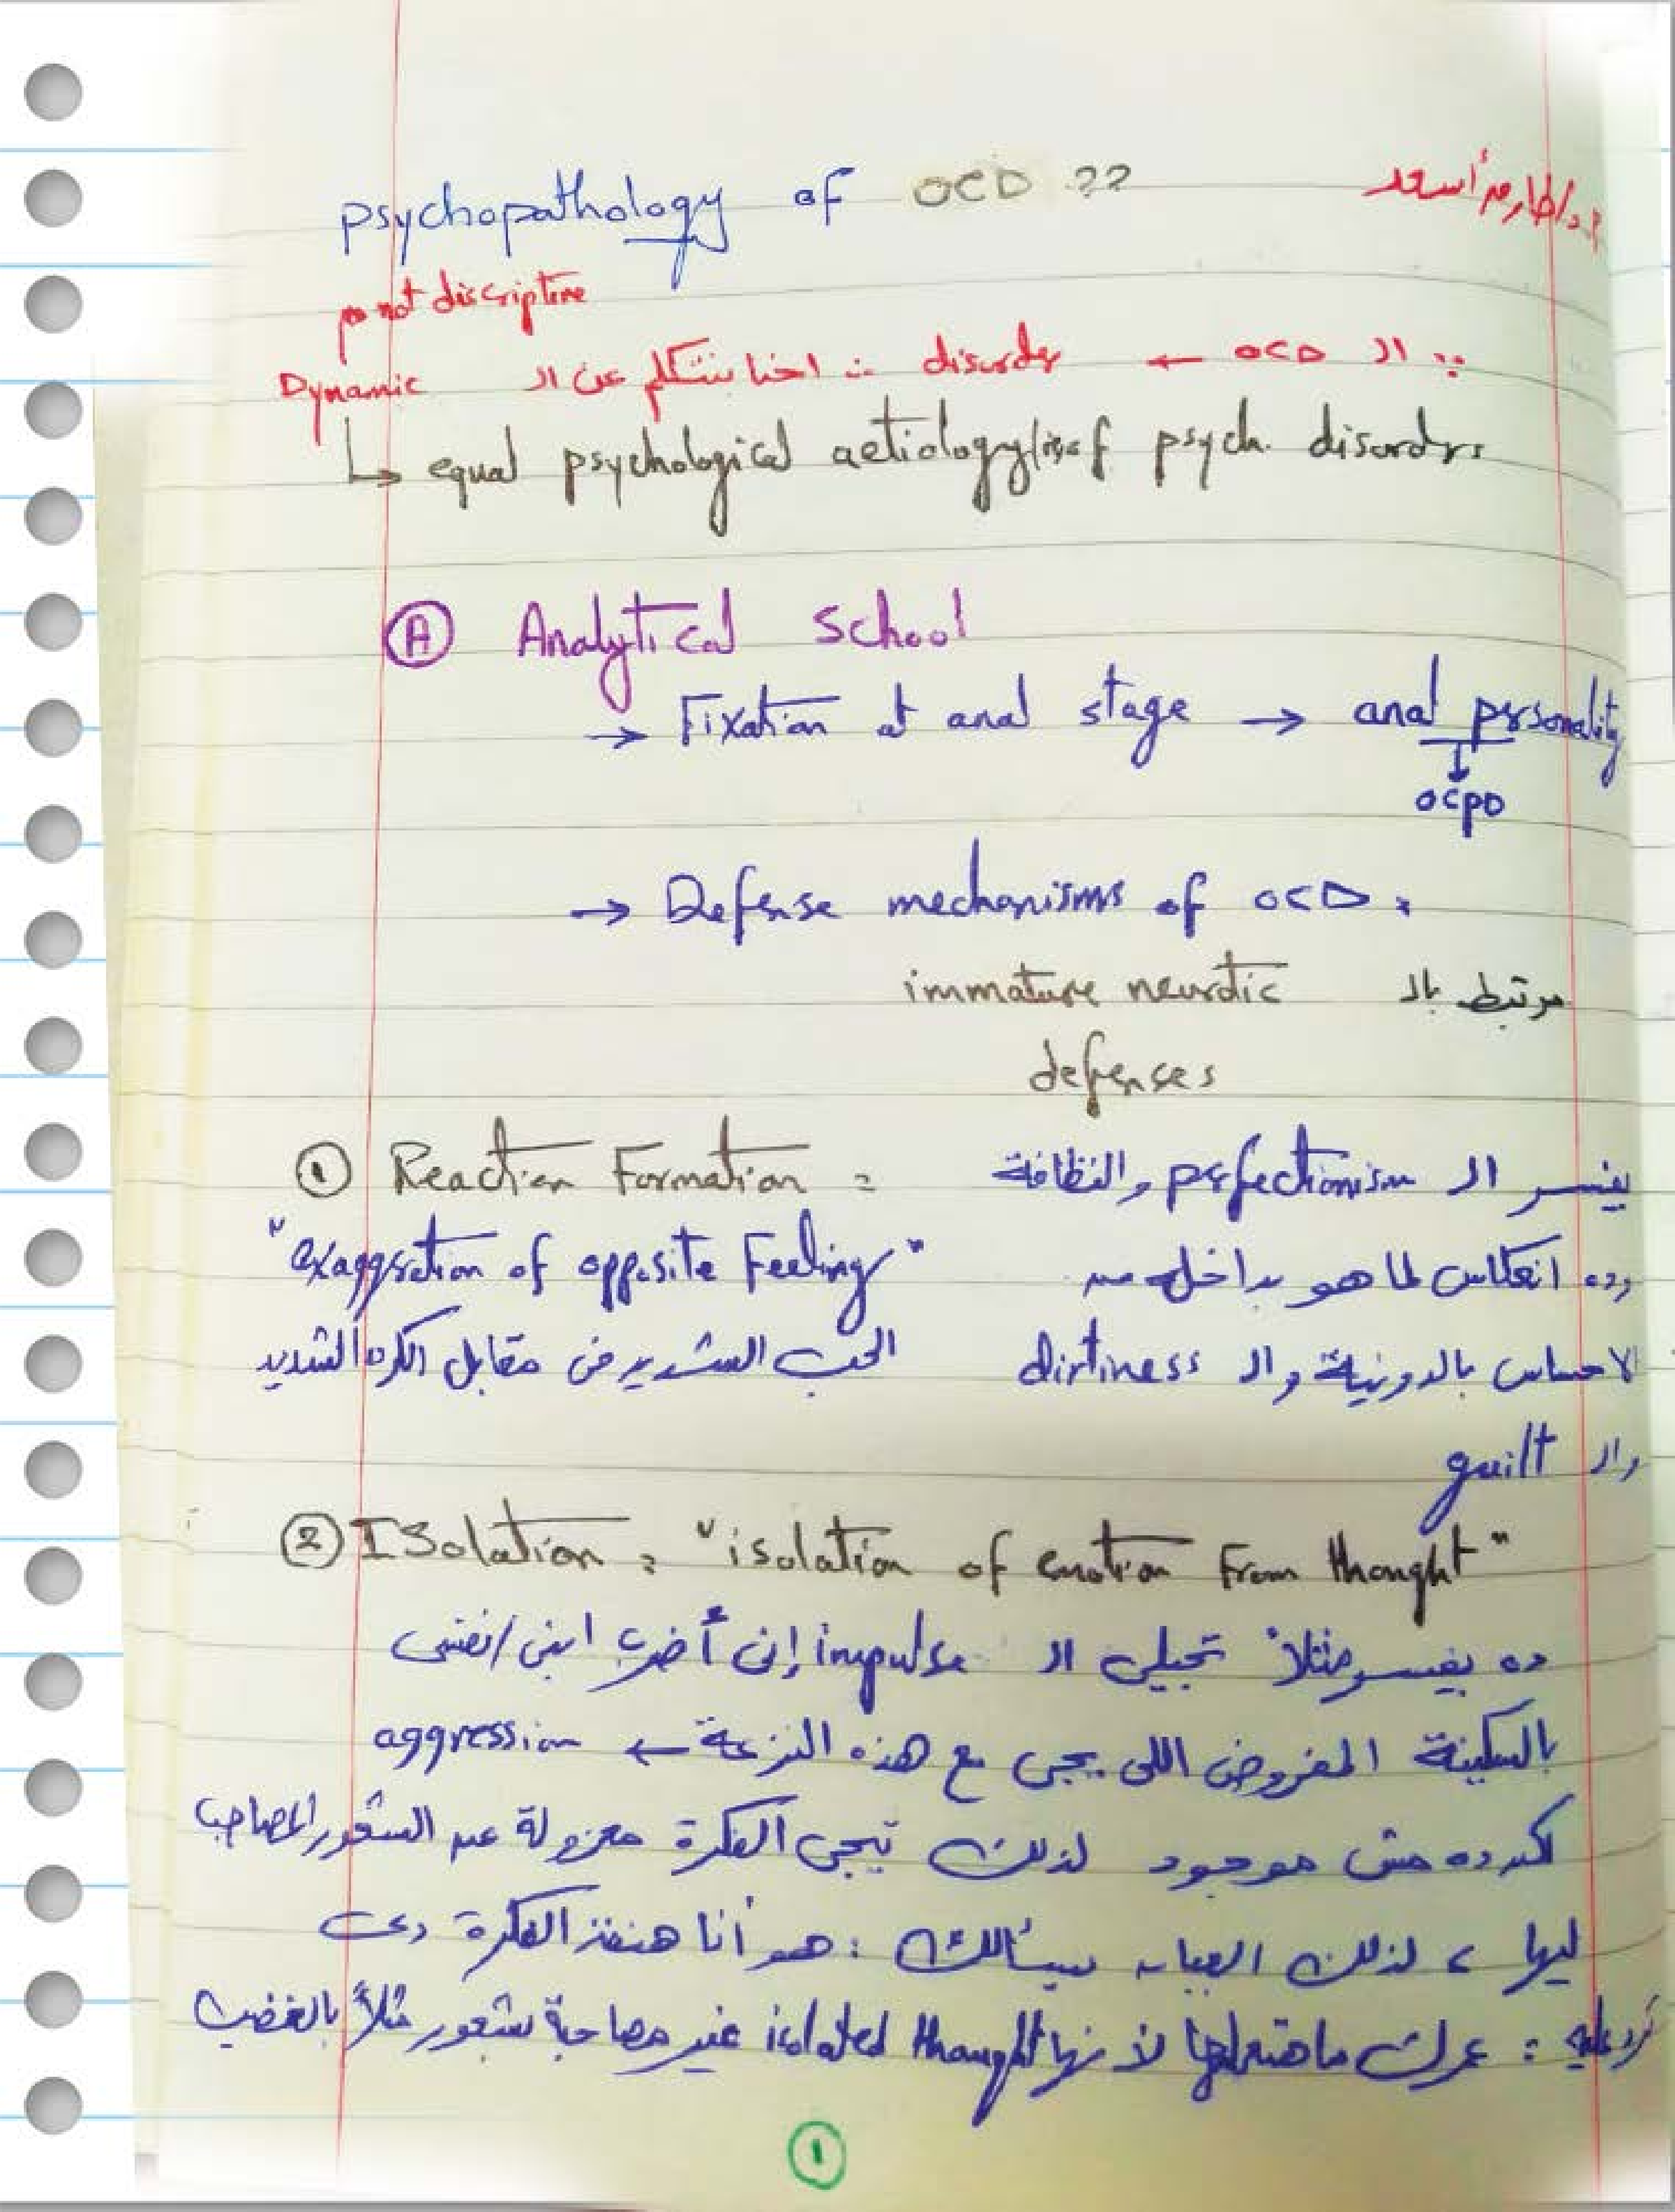 psychopathology of OCD ??
د/طارق أسعد
not discriptive
∵ ال OCD ← disorder ∴ احنا بنتكلم عن ال Dynamic
↳ equal psychological aetiology of psych. disorders
Ⓐ Analytical school
→ Fixation at anal stage → anal personality
↓
OCPD
→ Defense mechanisms of OCD :
مرتبط بال immature neurotic
defenses
① Reaction Formation :
"exaggeration of opposite Feeling"
الحب الشديد في مقابل الكره الشديد
يفسر ال perfectionism والنظافة
وده انعكاس لما هو بداخله من
الاحساس بالدونية وال dirtiness
وال guilt
② ISolation : "isolation of emotion From thought"
ده يفسر مثلاً تجيلي ال impulse إني أضرب ابني/نفسي
بالسكينة المفروض اللي يجي مع هذه النزعة ← aggression
لكن ده مش موجود لذلك تيجي الفكرة معزولة عن الشعور المصاحب
ليها ، لذلك العيان بيسألك : هو أنا هنفذ الفكرة دي
ترد عليه : عمرك ما هتعملها لأنها isolated thought غير مصاحبة بشعور مثلاً بالغضب
①